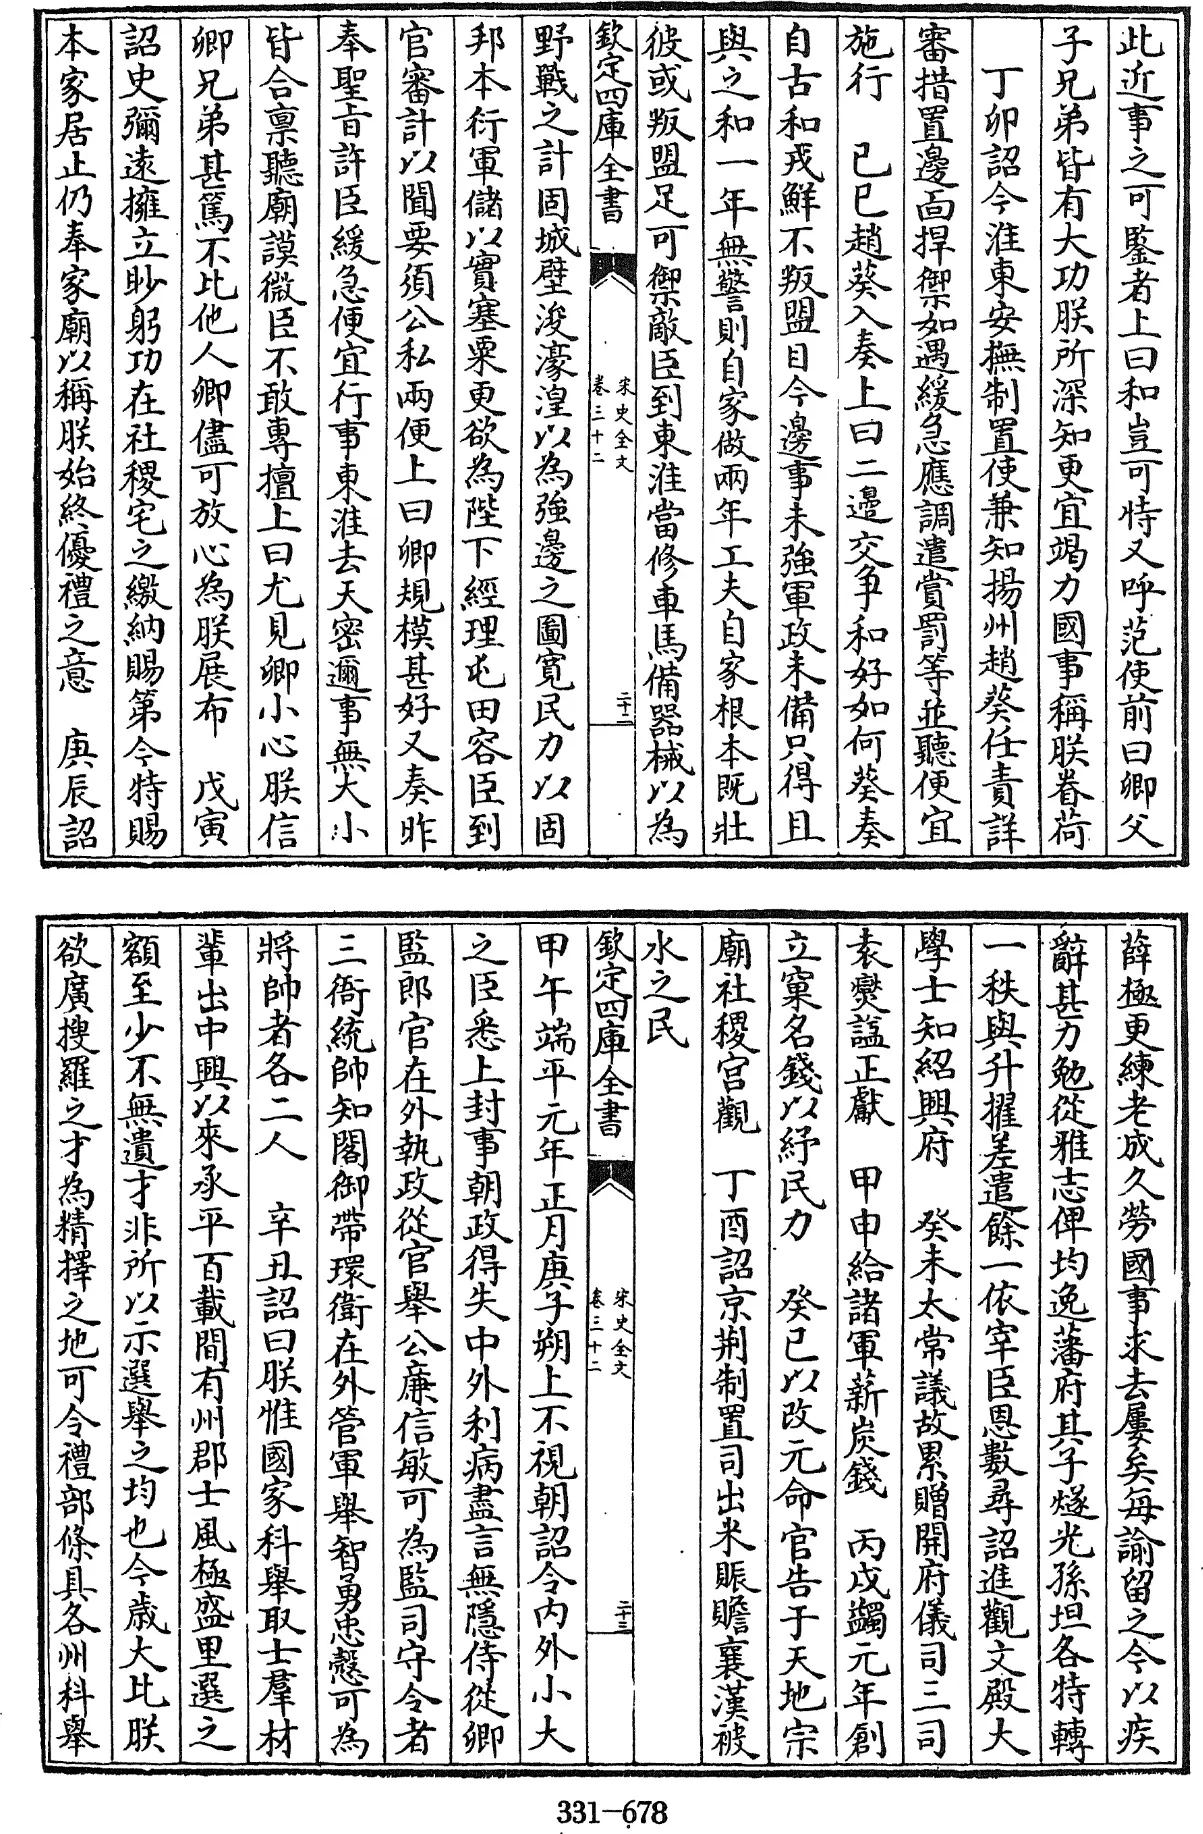 此近事之可鑒者上曰和豈可恃又呼范使前曰卿父
子兄弟皆有大功朕所深知更宜竭力國事稱朕眷荷
丁卯詔今淮東安撫制置使兼知揚州趙葵任責詳
審措置邊面捍禦如遇緩急應調遣賞罰等並聽便宜
施行　己巳趙葵入奏上曰二邊交爭和好如何葵奏
自古和戎鮮不叛盟目今邊事未強軍政未備只得且
與之和一年無警則自家做兩年工夫自家根本既壯
彼或叛盟足可禦敵臣到東淮當修車馬備器械以為
欽定四庫全書
宋史全文
卷三十二
二十二
野戰之計固城壁浚濠湟以為強邊之圖寛民力以固
邦本行軍儲以實塞粟更欲為陛下經理屯田容臣到
官審計以聞要須公私兩便上曰卿規模甚好又奏昨
奉聖旨許臣緩急便宜行事東淮去天密邇事無大小
皆合禀聽廟謨微臣不敢專擅上曰尤見卿小心朕信
卿兄弟甚篤不比他人卿儘可放心為朕展布　戊寅
詔史彌遠擁立眇躬功在社稷宅之繳納賜第令特賜
本家居止仍奉家廟以稱朕始終優禮之意　庚辰詔
薛極更練老成久勞國事求去屢矣每諭留之今以疾
辭甚力勉從雅志俾均逸藩府其子燧光孫坦各特轉
一秩與升擢差遣餘一依宰臣恩數尋詔進觀文殿大
學士知紹興府　癸未太常議故累贈開府儀司三司
袁燮諡正獻　甲申給諸軍薪炭錢　丙戌蠲元年創
立窠名錢以紓民力　癸巳以改元命官告于天地宗
廟社稷宮觀　丁酉詔京荆制置司出米賑贍襄漢被
水之民
欽定四庫全書
宋史全文
卷三十二
二十三
甲午端平元年正月庚子朔上不視朝詔令内外小大
之臣悉上封事朝政得失中外利病盡言無隱侍從卿
監郎官在外執政從官舉公廉信敏可為監司守令者
三衙統帥知閤御帶環衛在外管軍舉智勇忠慤可為
將帥者各二人　辛丑詔曰朕惟國家科舉取士羣材
輩出中興以來承平百載間有州郡士風極盛里選之
額至少不無遺才非所以示選舉之均也今歲大比朕
欲廣搜羅之才為精擇之地可令禮部條具各州科舉
331-678